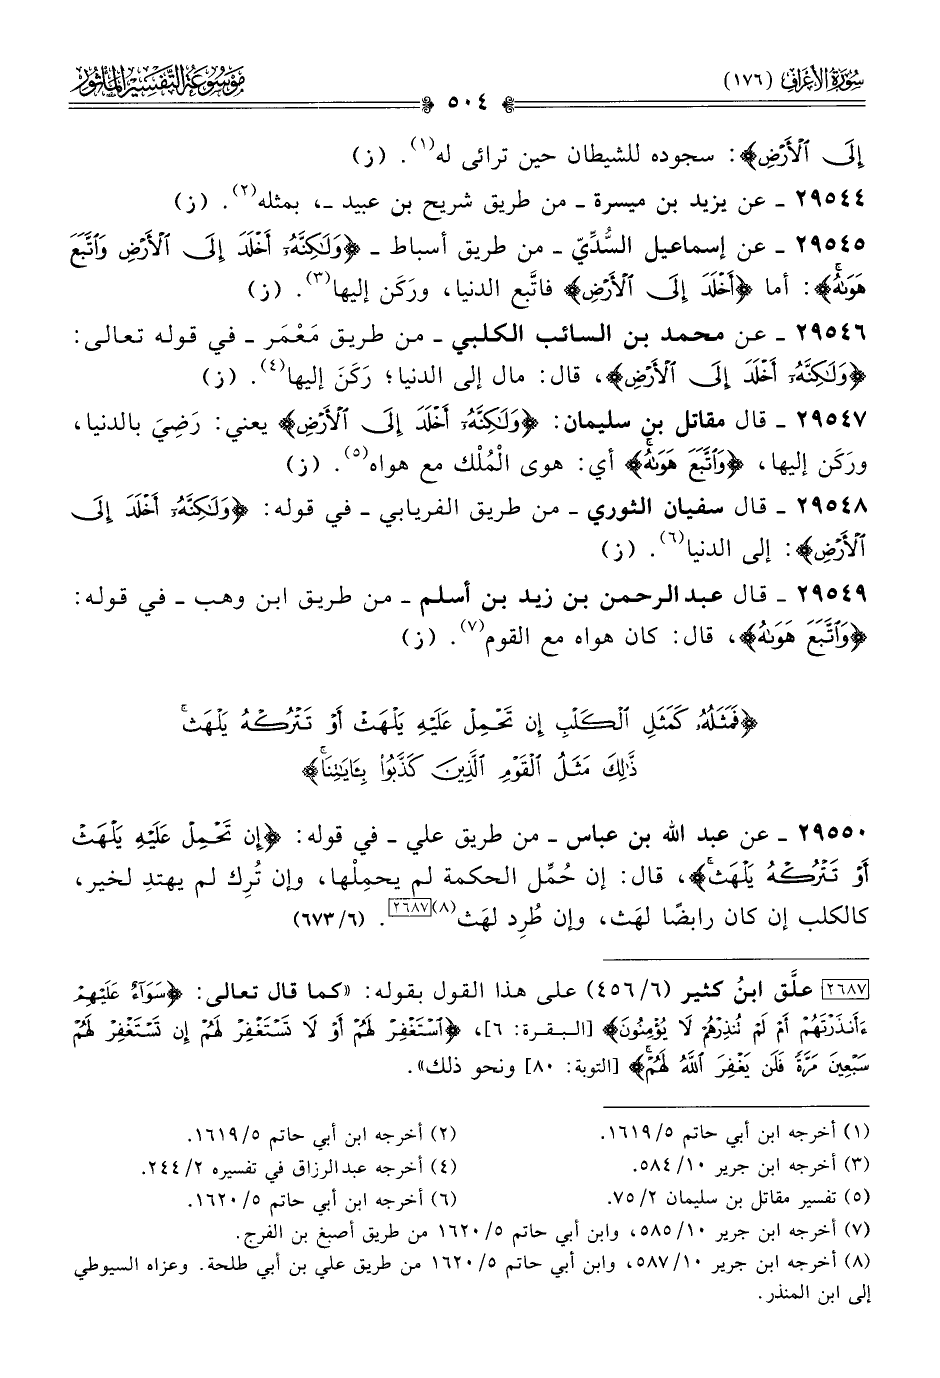 سُورَةُ الأَعْرَافِ (١٧٦)
مَوْسُوعَةُ التَّفْسِيرِ المَأْثُورِ
٥٠٤
إِلَى ٱلْأَرْضِ﴾: سجوده للشيطان حين ترائى له(١). (ز)
٢٩٥٤٤ ـ عن يزيد بن ميسرة ـ من طريق شريح بن عبيد ـ، بمثله(٢). (ز)
٢٩٥٤٥ ـ عن إسماعيل السُّدِّيّ ـ من طريق أسباط ـ ﴿وَلَٰكِنَّهُۥٓ أَخْلَدَ إِلَى ٱلْأَرْضِ وَٱتَّبَعَ
هَوَىٰهُۚ﴾: أما ﴿أَخْلَدَ إِلَى ٱلْأَرْضِ﴾ فاتَّبع الدنيا، ورَكَن إليها(٣). (ز)
٢٩٥٤٦ ـ عن محمد بن السائب الكلبي ـ من طريق مَعْمَر ـ في قوله تعالى:
﴿وَلَٰكِنَّهُۥٓ أَخْلَدَ إِلَى ٱلْأَرْضِ﴾، قال: مال إلى الدنيا؛ رَكَنَ إليها(٤). (ز)
٢٩٥٤٧ ـ قال مقاتل بن سليمان: ﴿وَلَٰكِنَّهُۥٓ أَخْلَدَ إِلَى ٱلْأَرْضِ﴾ يعني: رَضِيَ بالدنيا،
ورَكَن إليها، ﴿وَٱتَّبَعَ هَوَىٰهُۚ﴾ أي: هوى الْمُلْك مع هواه(٥). (ز)
٢٩٥٤٨ ـ قال سفيان الثوري ـ من طريق الفريابي ـ في قوله: ﴿وَلَٰكِنَّهُۥٓ أَخْلَدَ إِلَى
ٱلْأَرْضِ﴾: إلى الدنيا(٦). (ز)
٢٩٥٤٩ ـ قال عبدالرحمن بن زيد بن أسلم ـ من طريق ابن وهب ـ في قوله:
﴿وَٱتَّبَعَ هَوَىٰهُ﴾، قال: كان هواه مع القوم(٧). (ز)
﴿فَمَثَلُهُۥ كَمَثَلِ ٱلْكَلْبِ إِن تَحْمِلْ عَلَيْهِ يَلْهَثْ أَوْ تَتْرُكْهُ يَلْهَثۚ
ذَّٰلِكَ مَثَلُ ٱلْقَوْمِ ٱلَّذِينَ كَذَّبُوا۟ بِـَٔايَٰتِنَاۚ﴾
٢٩٥٥٠ ـ عن عبد الله بن عباس ـ من طريق علي ـ في قوله: ﴿إِن تَحْمِلْ عَلَيْهِ يَلْهَثْ
أَوْ تَتْرُكْهُ يَلْهَثۚ﴾، قال: إن حُمِّل الحكمة لم يحمِلْها، وإن تُرِك لم يهتدِ لخير،
كالكلب إن كان رابضًا لهَث، وإن طُرِد لهَث(٨)[٢٦٨٧]. (٦٧٣/٦)
[٢٦٨٧] علَّق ابنُ كثير (٤٥٦/٦) على هذا القول بقوله: «كما قال تعالى: ﴿سَوَآءٌ عَلَيْهِمْ
ءَأَنذَرْتَهُمْ أَمْ لَمْ تُنذِرْهُمْ لَا يُؤْمِنُونَ﴾ [البقرة: ٦]، ﴿ٱسْتَغْفِرْ لَهُمْ أَوْ لَا تَسْتَغْفِرْ لَهُمْ إِن تَسْتَغْفِرْ لَهُمْ
سَبْعِينَ مَرَّةً فَلَن يَغْفِرَ ٱللَّهُ لَهُمْۚ﴾ [التوبة: ٨٠] ونحو ذلك».
(١) أخرجه ابن أبي حاتم ١٦١٩/٥.
(٢) أخرجه ابن أبي حاتم ١٦١٩/٥.
(٣) أخرجه ابن جرير ٥٨٤/١٠.
(٤) أخرجه عبدالرزاق في تفسيره ٢٤٤/٢.
(٥) تفسير مقاتل بن سليمان ٧٥/٢.
(٦) أخرجه ابن أبي حاتم ١٦٢٠/٥.
(٧) أخرجه ابن جرير ٥٨٥/١٠، وابن أبي حاتم ١٦٢٠/٥ من طريق أصبغ بن الفرج.
(٨) أخرجه ابن جرير ٥٨٧/١٠، وابن أبي حاتم ١٦٢٠/٥ من طريق علي بن أبي طلحة. وعزاه السيوطي
إلى ابن المنذر.